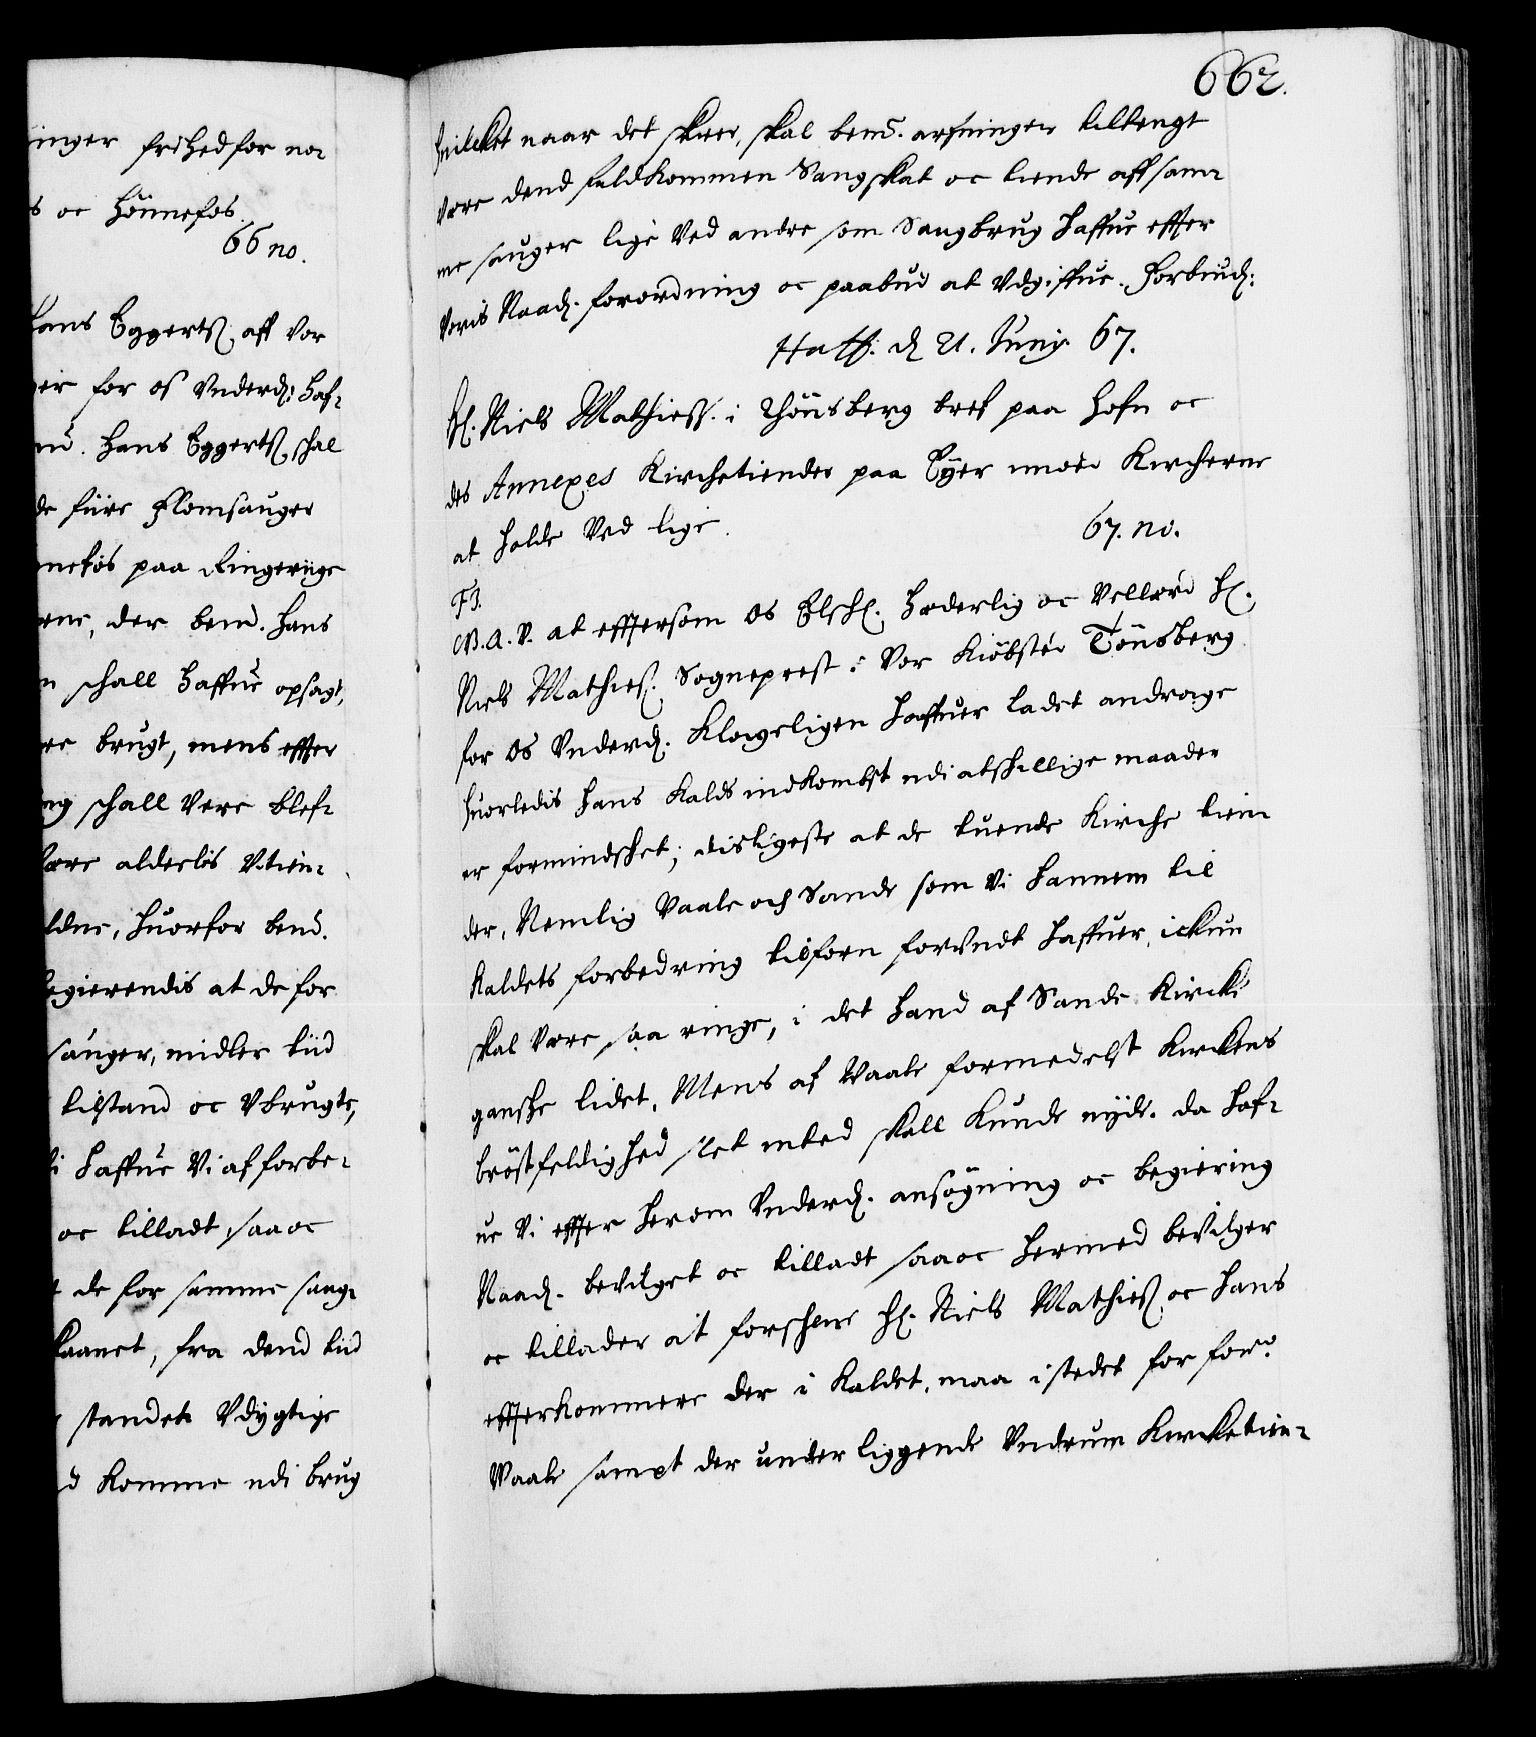 inger frihed for no-
s oc Hönnefos.
66 no.
Hans Eggerts. aff vor
er for os Underd: haf-
nd. Hans Eggerts. schal
de fiire Flomsauger
nefos paa Ringeriige
rne, der bemd. Hans
n schall haffue opsagt,
re brugt, mens effter
ng schall vere blef-
vere alderlis Utien-
ldne, huorfor bemd.
begierendis at de for
sauger, midler tiid
tilstand oc Ubrugte,
i haffue Vi af forbe-
oc tilladt saa oc
t de for samme saug-
kaanet, fra dend tiid
standet Udygtige
d komme udi brug
662.
huilcket naar det skeer, skal bemd. arfninger tiltengt
være dend fuldkommen Saugskat oc tiende aff sam-
me sauger lige ved andre som Saugbrug haffue effter
voris Naad. forordning oc paabud at Udgiffue. Forbiud:
Haff. d 21. Junij 67.
Hr. Niels Mathiess. i Thönsberg bref paa Hofn oc
des Annexes Kirchetiender paa Eyer imod Kircherne
at holde Ved lige. 67. no.
F3.
G. A. V. at efftersom os Elshr. Hæderlig oc Vellærd Hr.
Niels Mathies. Sogneprest i Vor Kiöbsted Tönsberg
for os Underd. Klageligen haffuer ladet andrage
huorledis hans Kalds indkombst udi atskillige maader
er formindsket; disligeste at de tuende Kirche tien-
der, Nemlig Vaale och Sande som Vi hannem til
Kaldets forbedring tilforn forundt haffuer, ickun
skal være saa ringe, i det hand af Sande Kircke
ganshe lidet, Mens af Vaale formedelst Kirckens
bröstfeldighed slet inted skall kunde nyde. da haf-
ue Vi effter herom Underd. ansögning oc begiering
Naad. bevilget oc tilladt saa oc hermed bevilger
oc tillader at forschrne Hr. Niels Mathies. oc hans
effterkommere der i Kaldet, maa i stedet for forne
Vaale sampt der under liggende Undrum Kircketien-